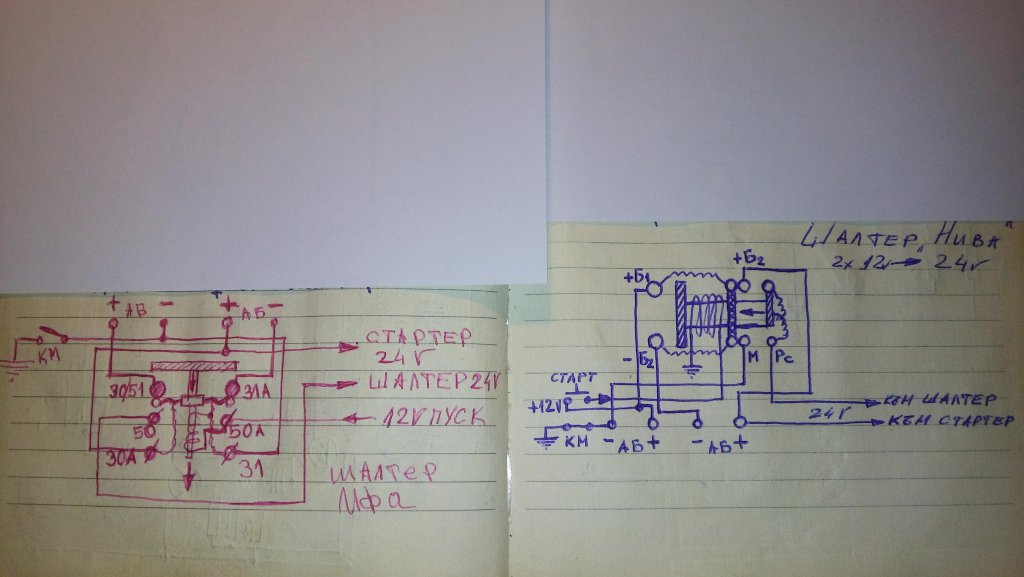 + АБ - + АБ -
КМ
СТАРТЕР
24V
ШАЛТЕР 24V
30/51 31А
12V ПУСК
50 50А
30А 31
ШАЛТЕР
Ифа
ШАЛТЕР „НИВА"
2х12v → 24v
+Б1 +Б2
-Б2 М Рс
СТАРТ
+12V
КЪМ ШАЛТЕР
24V
КЪМ СТАРТЕР
КМ - АБ + - АБ +